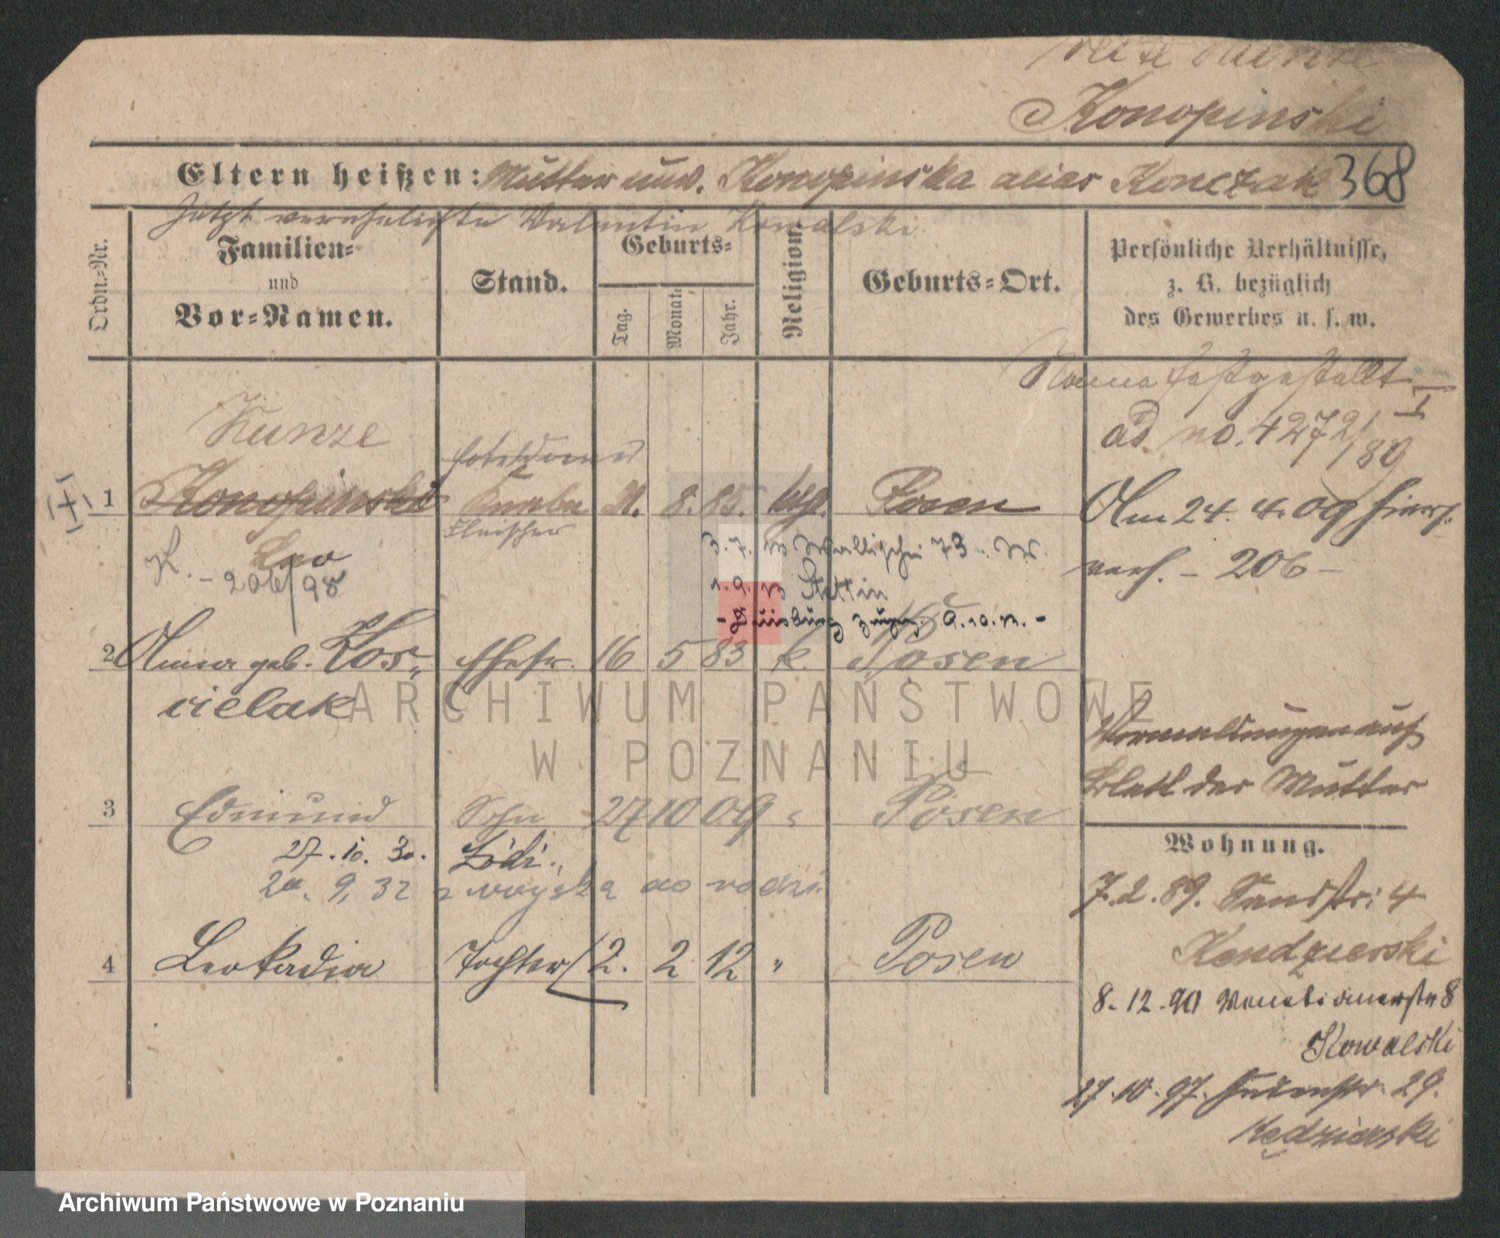 Kunze
Konopinski
Eltern heißen: Mutter unv. Konopinska alias Konczak 368
Jetzt verehelichte Valentin Kowalski
Ordn.-Nr.
Familien-
und
Vor-Namen.
Stand.
Geburts-
Tag.
Monat.
Jahr.
Religion.
Geburts-Ort.
Persönliche Verhältnisse,
z. B. bezüglich
des Gewerbes u. s. w.
Name festgestellt
ad no. 4272/89
Kunze
1 Konopinski Knabe 21. 8. 85. Posen
Fleischer
Leo
K. - 206/98
Am 24. 4. 09 hiers.
verh. - 206 -
3. 7. Wallischei 73
1. 9. Stettin
- Duisburg 9. 10. -
2 Anna geb. Kos- Ehefr. 16 5 83 k. Posen
cielak
Vermeldungen auf
Blatt der Mutter
3 Edmund Sohn 27 10 09 " Posen
27. 10. 30. Łódź
20. 9. 32 z wojska do rodz.
4 Leokadia Tochter 2. 2 12 " Posen
Wohnung.
7. 2. 89. Sandstr. 4
Kendzierski
8. 12. 90 Venetianerstr 8
Kowalski
27. 10. 97. 29.
Kędzierski
ARCHIWUM PAŃSTWOWE
W POZNANIU
Archiwum Państwowe w Poznaniu